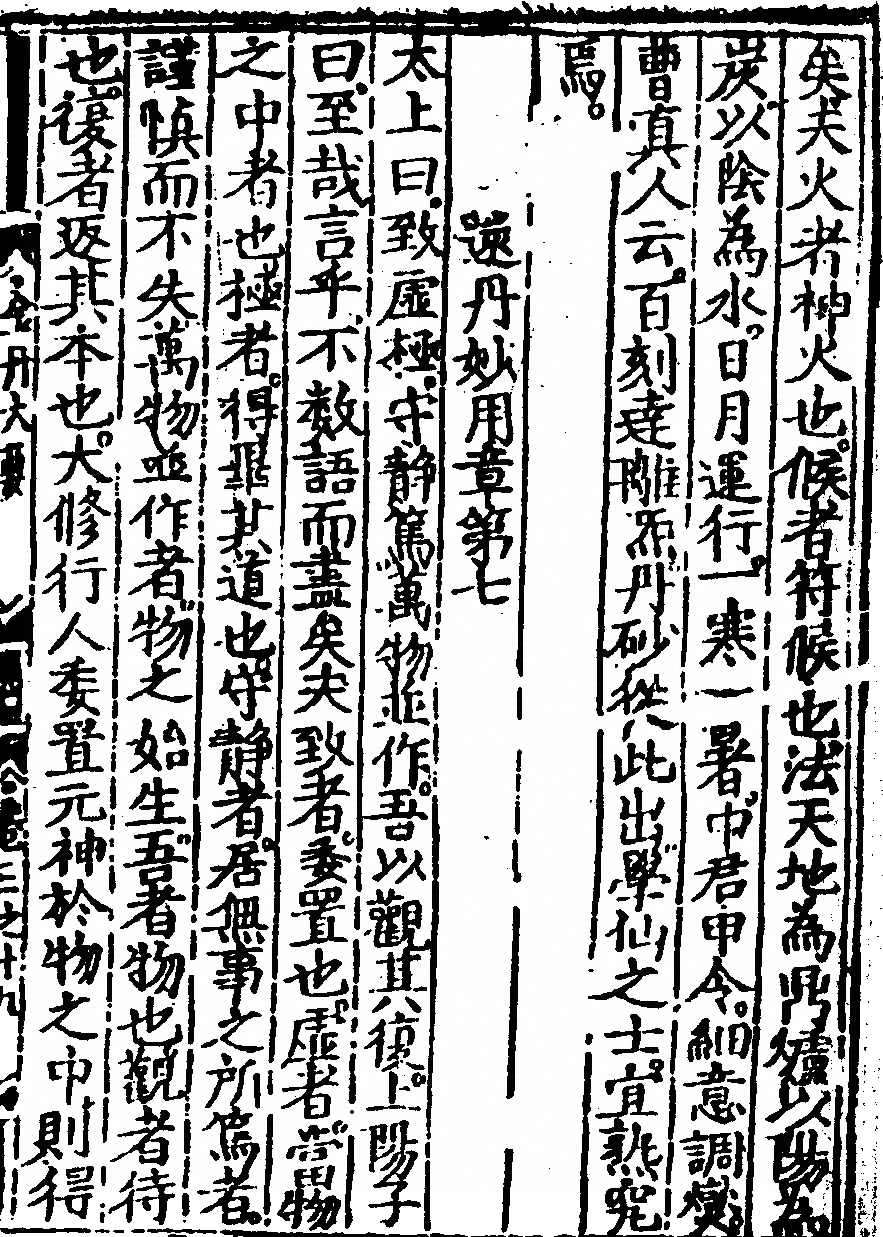 矣夫火者神火也候者符候也法天地為鼎爐以陽為
炭以陰為水日月運行一寒一暑中君申令細意調燮
曹真人云百刻達離炁丹砂從此出學仙之士宜熟究
焉
還丹妙用章第七
太上曰致虛極守静篤萬物並作吾以觀其復上陽子
曰至哉言乎不数語而盡矣夫致者委置也虛者當物
之中者也極者得非其道也守静者居無事之所篤者
謹慎而不失萬物並作者物之始生吾者物也觀者待
也復者返其本也大修行人委置元神於物之中則得
金丹大要 卷三之十九